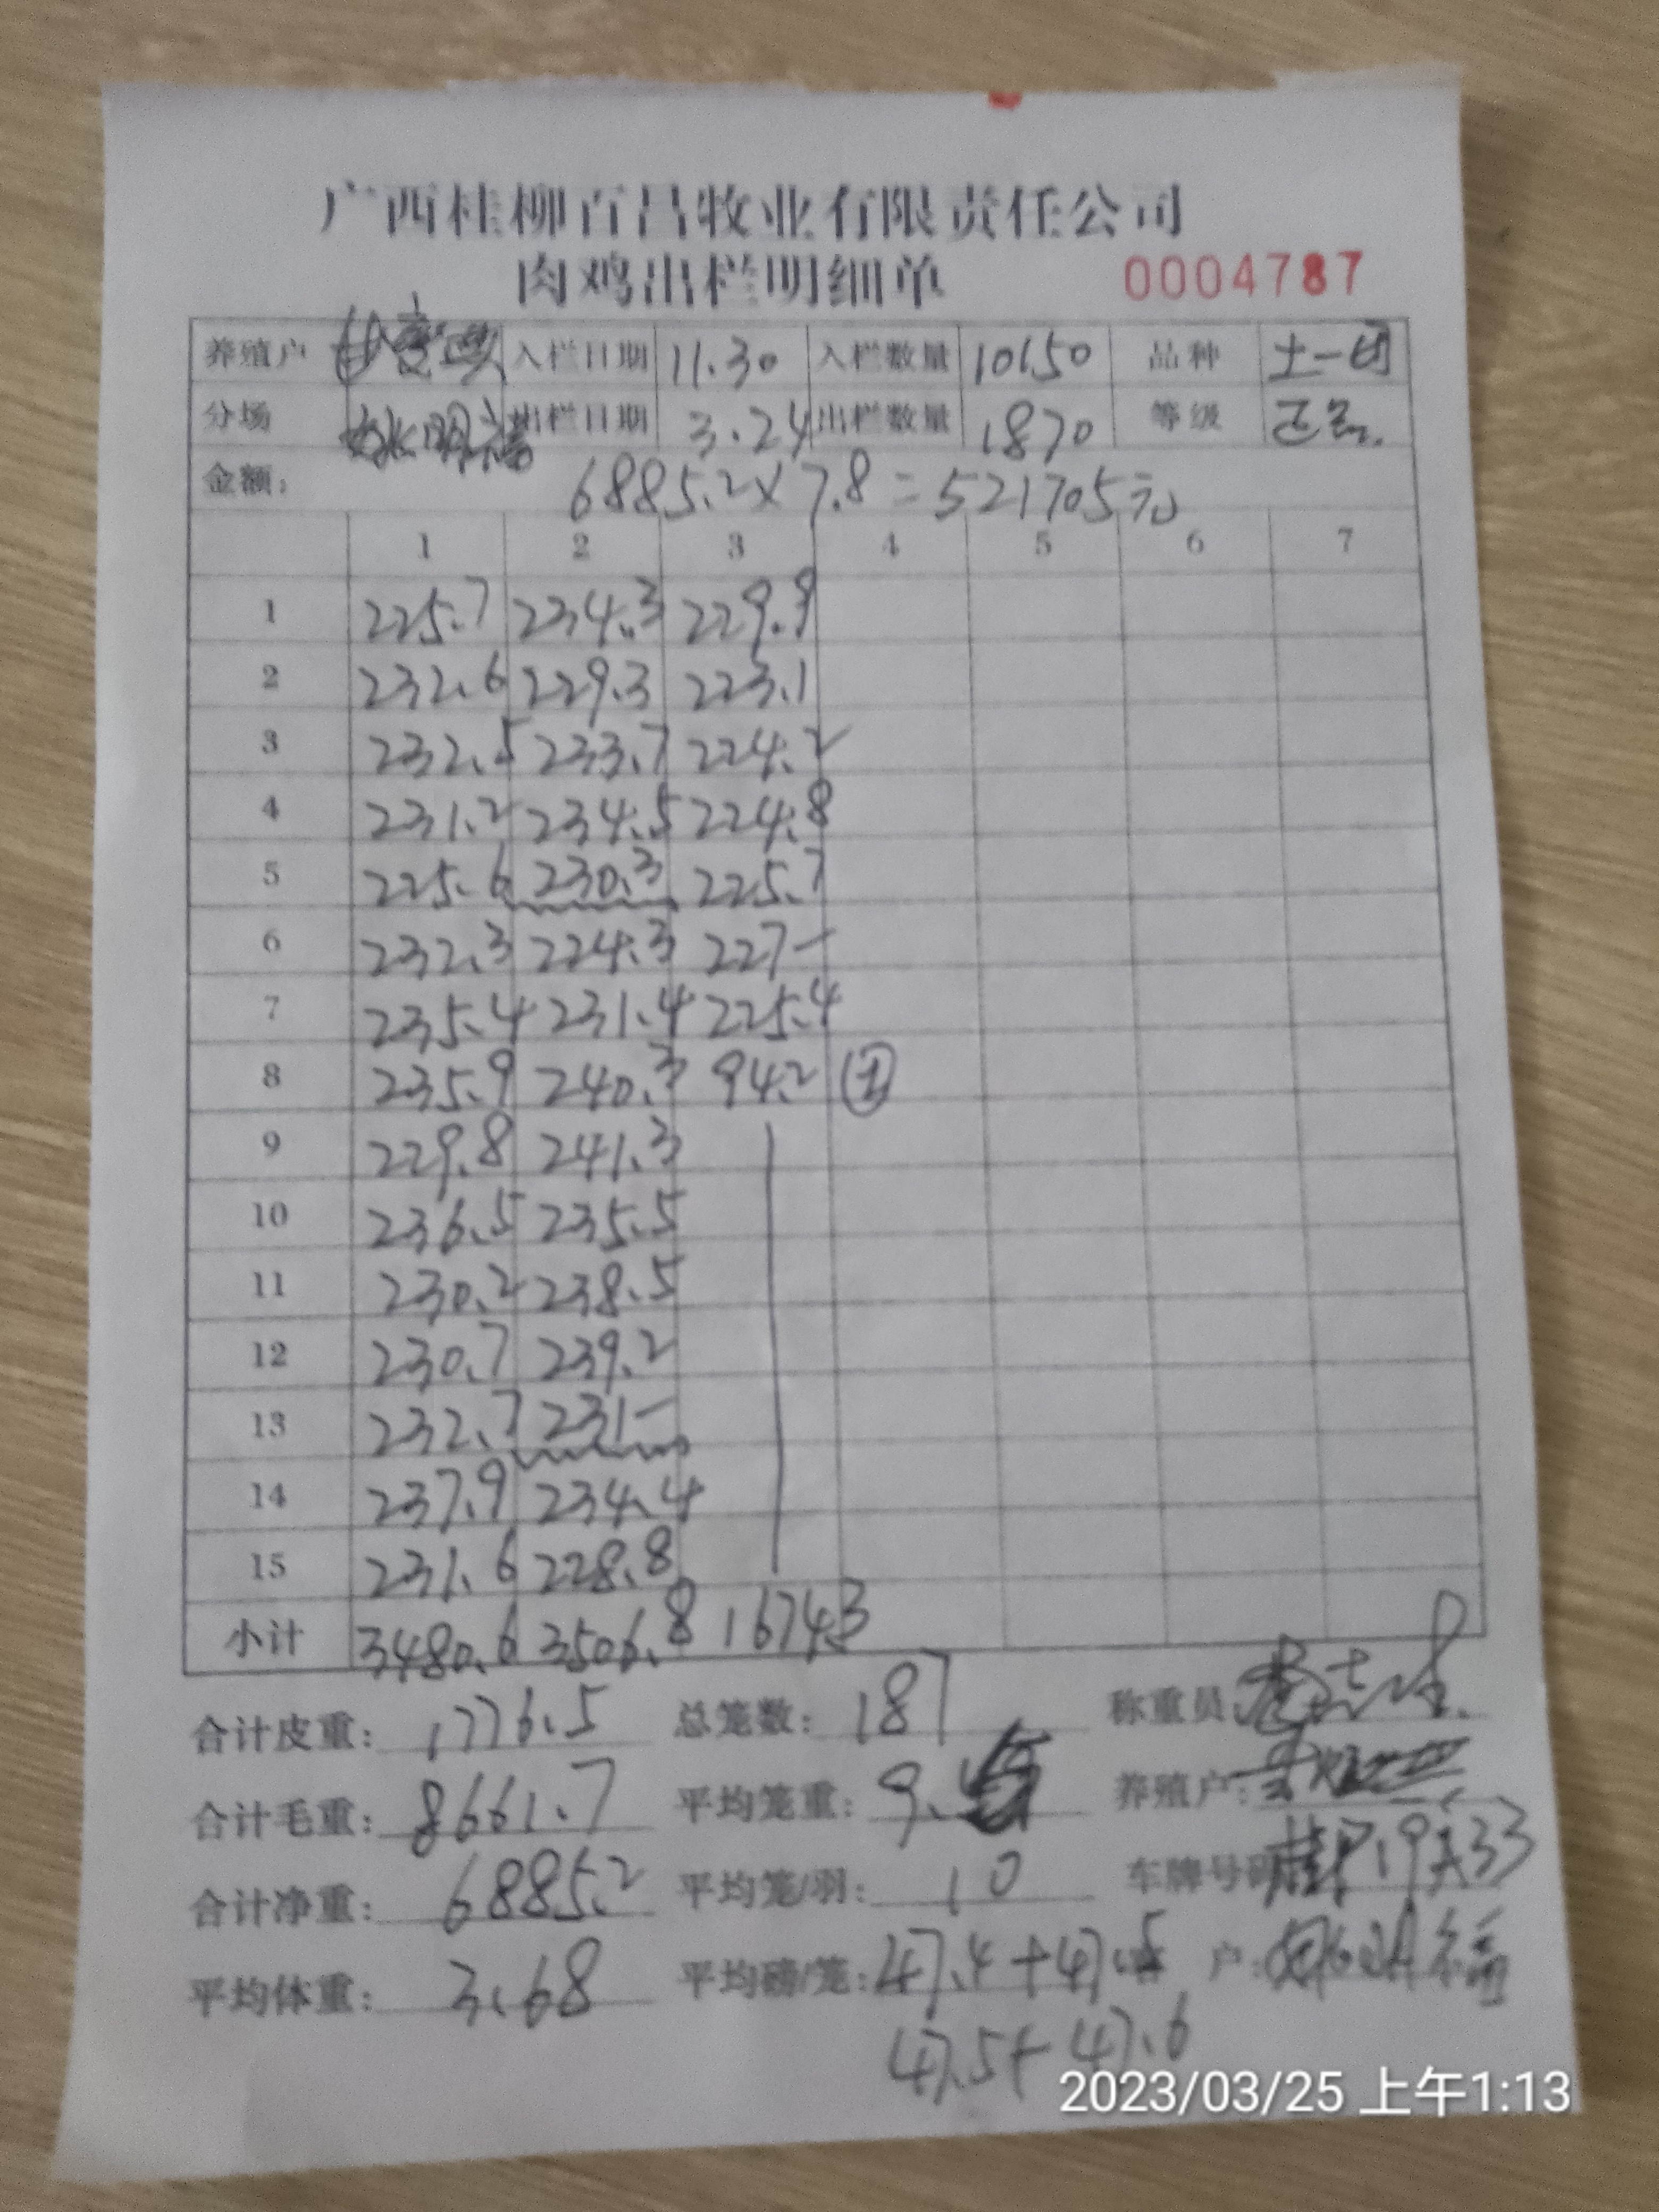 广西桂柳百昌牧业有限责任公司
肉鸡出栏明细单 0004787
养殖户 入栏日期 11.30 入栏数量 10150 品种 土一
分场 出栏日期 3.24 出栏数量 1870 等级
金额: 6885.2×7.8=521705元
1 2 3 4 5 6 7
1 225.7 234.3 229.9
2 232.6 229.3 223.1
3 232.5 233.7 224.2
4 231.2 234.5 224.8
5 225.6 230.3 225.7
6 232.3 224.3 227-
7 235.4 231.4 225.4
8 235.9 240.3 94.2
9 229.8 241.3
10 236.5 235.5
11 230.2 238.5
12 230.7 239.2
13 232.7 231-
14 237.9 234.4
15 231.6 228.8
小计 3480.6 3506.8 1674.3
合计皮重: 1776.5 总笼数: 187 称重员:
合计毛重: 8661.7 平均笼重: 9. 养殖户:
合计净重: 6885.2 平均笼/羽: 10 车牌号码
平均体重: 3.68 平均磅/笼: 47.4+47.5 户:
47.5+47.6
2023/03/25 上午1:13